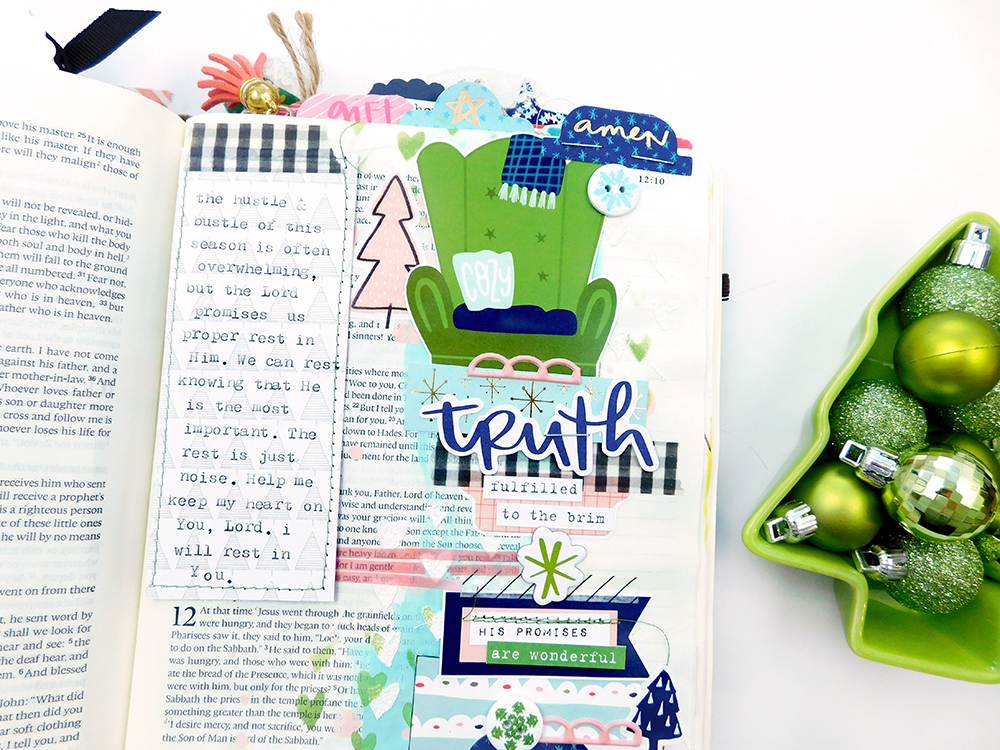 ove his master. 25 It is enough
like his master. If they have
re will they malign2 those of
will not be revealed, or hid-
y in the light, and what you
fear those who kill the body
both soul and body in hell.3
them will fall to the ground
e all numbered. 31 Fear not,
eryone who acknowledges
who is in heaven, 33 but
ather who is in heaven.
earth. I have not come
against his father, and a
er mother-in-law. 36 And
Whoever loves father or
s son or daughter more
cross and follow me is
hoever loses his life for
receives him who sent
ill receive a prophet's
is a righteous person
e of these little ones
he will by no means
went on from there
t, he sent word by
shall we look for
hear and see: 5 the
he deaf hear, and
m. 6 And blessed
John: "What did
hat then did you
ar soft clothing
I tell you, and
the hustle &
bustle of this
season is often
overwhelming,
but the Lord
promises us
proper rest in
Him. We can rest
knowing that He
is the most
important. The
rest is just
noise. Help me
keep my heart on
You, Lord. i
will rest in
You.
gift
amen
12:10
cozy
and
sinners!
cities where mos
"Woe to you,
had been done in
22 But I tell y
than for you. 23
down to Hades. For
have remained until
ment for the land
truth
fulfilled
to the brim
Father, Lord of heaven
wise and understanding and
was your gracious will. All thin
no one son except the Fat
anyone whom the Son chooses reveal
heavy laden,
for I am gentle
is easy, and m
12 At that time Jesus went through the grainfields on
were hungry, and they began to pluck heads of grain
Pharisees saw it, they said to him, "Look, your d
to do on the Sabbath." 3 He said to them, "Have
was hungry, and those who were with him: 4
ate the bread of the Presence, which it was no
were with him, but only for the priests? 5 Or
Sabbath the priests in the temple profane the
something greater than the temple is here.
'I desire mercy, and not sacrifice,' you w
the Son of Man is lord of the Sabbath."
HIS PROMISES
are wonderful